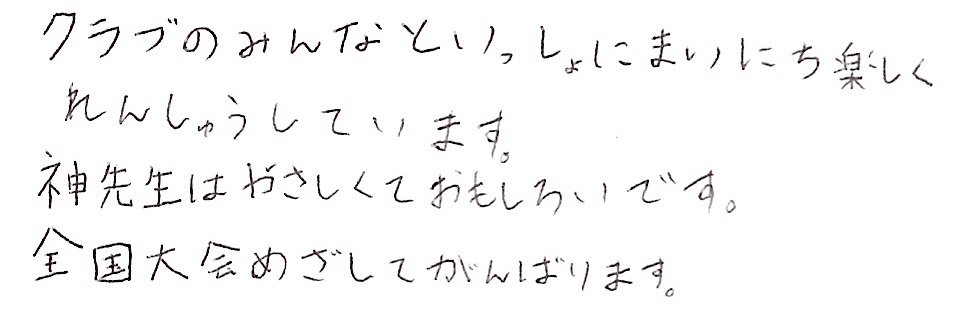 クラブのみんなといっしょにまいにち楽しく
れんしゅうしています。
神先生はやさしくておもしろいです。
全国大会めざしてがんばります。